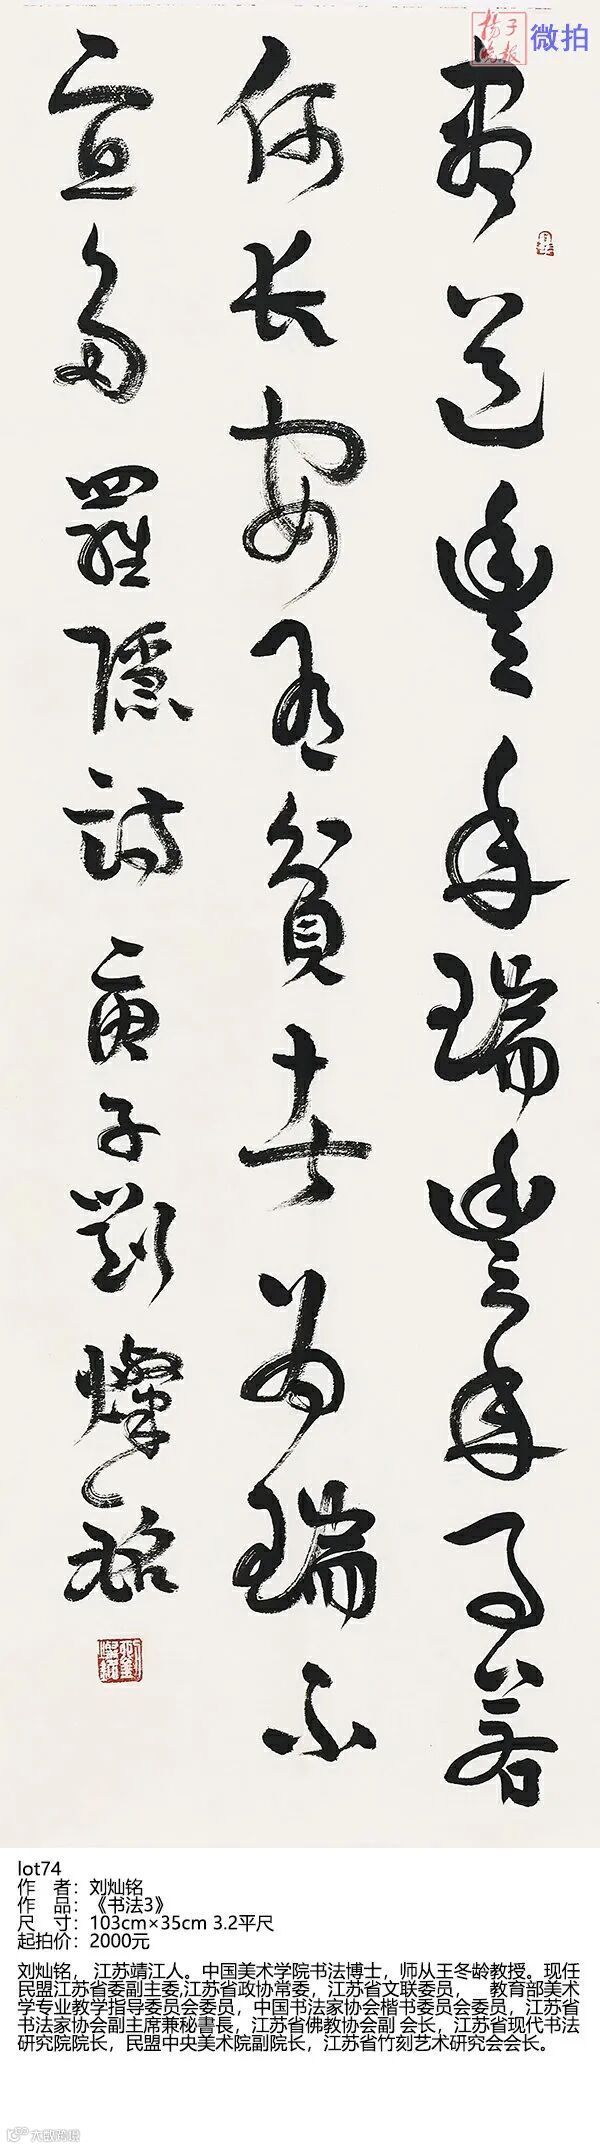 扬子晚报 微拍
盡道豐年瑞豐年事若
何長安有貧者為瑞不
宜多 羅隱詩 庚子劉燦銘
lot74
作 者：刘灿铭
作 品：《书法3》
尺 寸：103cm×35cm 3.2平尺
起拍价：2000元
刘灿铭， 江苏靖江人。中国美术学院书法博士，师从王冬龄教授。现任
民盟江苏省委副主委,江苏省政协常委，江苏省文联委员， 教育部美术
学专业教学指导委员会委员，中国书法家协会楷书委员会委员，江苏省
书法家协会副主席兼秘書長，江苏省佛教协会副 会长，江苏省现代书法
研究院院长，民盟中央美术院副院长，江苏省竹刻艺术研究会会长。
大歐跨境